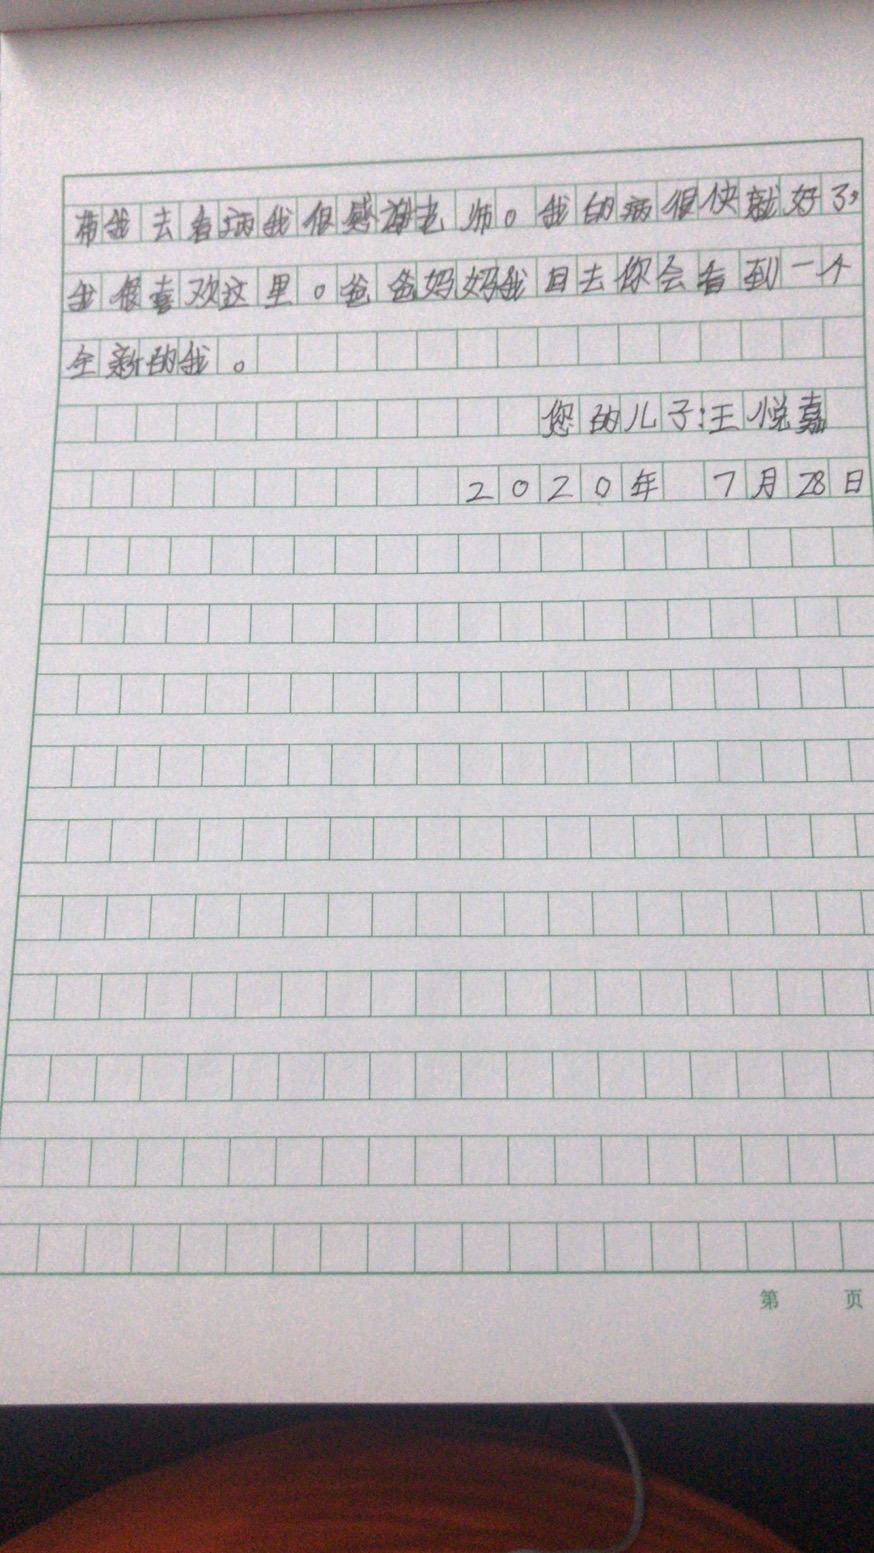 带我去看病我很感谢老师。我的病很快就好了，
我很喜欢这里。爸爸妈妈我回去你会看到一个
全新的我。
您的儿子：王悦嘉
2020年 7月28日
第 页